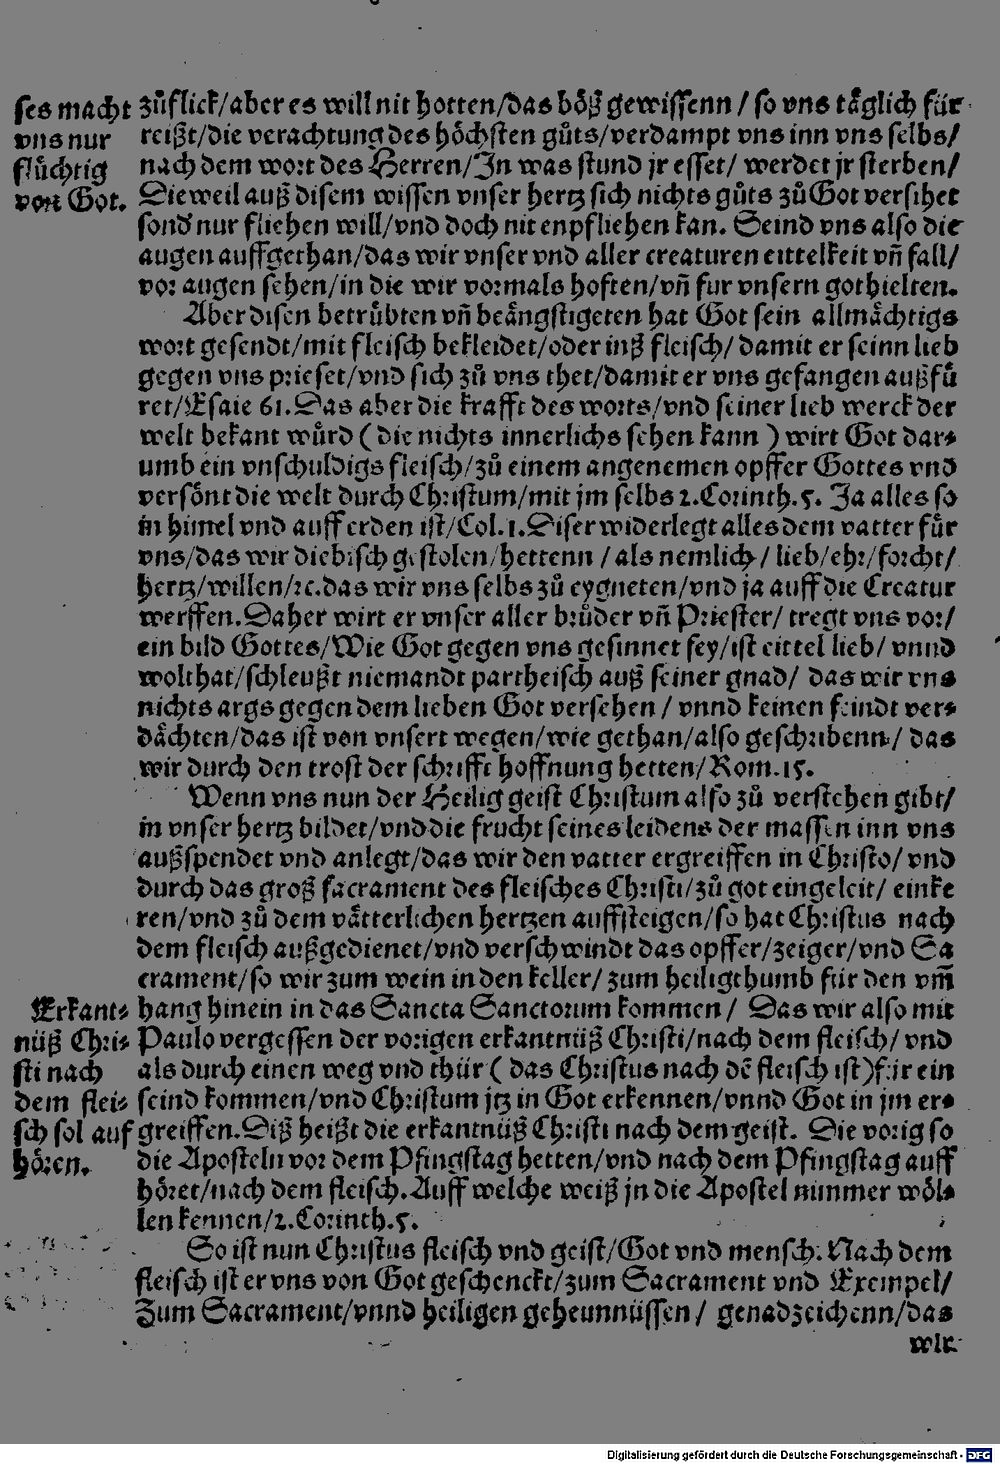 ses macht
vns nur
flüchtig
von Got.
zůflick/aber es will nit hotten/das böß gewissenn / so vns täglich für
reißt/die verachtung des höchsten gůts/verdampt vns inn vns selbs/
nach dem wort des Herren/In was stund jr esset/ werdet jr sterben/
Die weil auß disem wissen vnser hertz sich nichts gůts zů Got versihet
sond' nur fliehen will/vnd doch nit enpfliehen kan. Seind vns also die
augen auffgethan/das wir vnser vnd aller creaturen eittelkeit vñ fall/
vor augen sehen/in die wir vormals hoften/vñ fur vnsern got hielten.
Aber disen betrübten vñ beängstigeten hat Got sein allmächtigs
wort gesendt/mit fleisch bekleidet/oder inß fleisch/ damit er seinn lieb
gegen vns prieset/vnd sich zů vns thet/damit er vns gefangen außfů
ret/Esaie 61. Das aber die krafft des worts/vnd seiner lieb werck der
welt bekant würd ( die nichts innerlichs sehen kann ) wirt Got dar⸗
umb ein vnschuldigs fleisch/zů einem angenemen opffer Gottes vnd
versönt die welt durch Christum/mit jm selbs 2.Corinth.5. Ja alles so
in himel vnd auff erden ist/Col.1.Diser widerlegt alles dem vatter für
vns/das wir diebisch gestolen/hettenn / als nemlich / lieb/ehr/forcht/
hertz/willen/ꝛc.das wir vns selbs zů eygneten/vnd ja auff die Creatur
werffen.Daher wirt er vnser aller brůder vñ Priester/ tregt vns vor/
ein bild Gottes/Wie Got gegen vns gesinnet sey/ist eittel lieb/ vnnd
wolthat/schleußt niemandt partheisch auß seiner gnad/ das wir vns
nichts args gegen dem lieben Got versehen / vnnd keinen feindt ver⸗
dächten/das ist von vnsert wegen/wie gethan/also geschribenn/ das
wir durch den trost der schrifft hoffnung hetten/Rom.15.
Wenn vns nun der Heilig geist Christum also zů verstehen gibt/
in vnser hertz bildet/vnd die frucht seines leidens der massen inn vns
außspendet vnd anlegt/das wir den vatter ergreiffen in Christo/ vnd
durch das groß sacrament des fleisches Christi/zů got eingeleit/ einke
ren/vnd zů dem vätterlichen hertzen auffsteigen/so hat Christus nach
dem fleisch außgedienet/vnd verschwindt das opffer/zeiger/vnd Sa
crament/so wir zum wein in den keller/ zum heiligthumb für den vm̄
hang hinein in das Sancta Sanctorum kommen / Das wir also mit
Paulo vergessen der vorigen erkantnüß Christi/nach dem fleisch/ vnd
als durch einen weg vnd thür ( das Christus nach dē fleisch ist)für ein
seind kommen/vnd Christum jtz in Got erkennen/vnnd Got in jm er⸗
greiffen.Diß heißt die erkantnüß Christi nach dem geist. Die vorig so
die Aposteln vor dem Pfingstag hetten/vnd nach dem Pfingstag auff
höret/nach dem fleisch.Auff welche weiß jn die Apostel nimmer wöl⸗
len kennen/2.Corinth.5.
Erkant⸗
nüß Chri⸗
sti nach
dem flei⸗
sch sol auf
hören.
So ist nun Christus fleisch vnd geist/Got vnd mensch. Nach dem
fleisch ist er vns von Got geschenckt/zum Sacrament vnd Exempel/
Zum Sacrament/vnnd heiligen geheimnüssen / genadzeichenn/das
wir
Digitalisierung gefördert durch die Deutsche Forschungsgemeinschaft - DFG